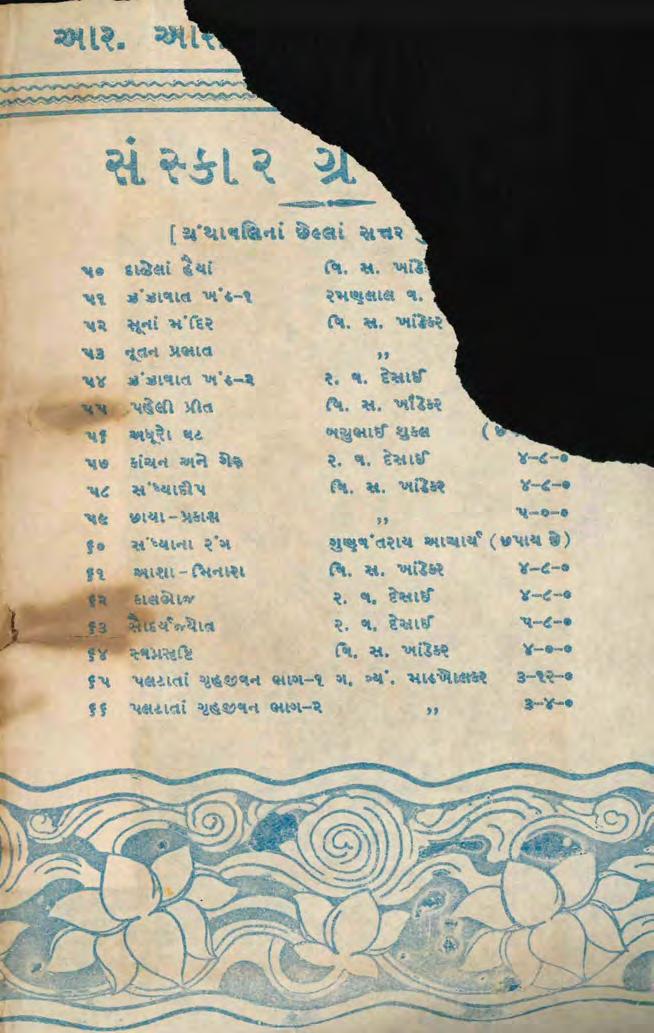 આર. આર.
સંસ્કાર ગ્ર
[ ગ્રંથાવલિનાં છેલ્લાં સત્તર
૫૦ દાઝેલાં હૈયાં વિ. સ. ખાંડેકર
૫૧ ઝંઝાવાત ખંડ-૧ રમણલાલ વ.
૫૨ સૂનાં મંદિર વિ. સ. ખાંડેકર
૫૩ નૂતન પ્રભાત ,,
૫૪ ઝંઝાવાત ખંડ-૨ ર. વ. દેસાઈ
૫૫ પહેલી પ્રીત વિ. સ. ખાંડેકર
૫૬ અધૂરો ઘટ બચુભાઈ શુકલ (છપા
૫૭ કાંચન અને ગેરુ ર. વ. દેસાઈ ૪-૮-૦
૫૮ સંધ્યાદીપ વિ. સ. ખાંડેકર ૪-૮-૦
૫૯ છાયા-પ્રકાશ ,, ૫-૦-૦
૬૦ સંધ્યાના રંગ ગુણવંતરાય આચાર્ય (છપાય છે)
૬૧ આશા-ભિનાશ વિ. સ. ખાંડેકર ૪-૮-૦
૬૨ કાલભોજ ર. વ. દેસાઈ ૪-૮-૦
૬૩ સૌંદર્યજ્યોત ર. વ. દેસાઈ ૫-૮-૦
૬૪ સ્વપ્નસૃષ્ટિ વિ. સ. ખાંડેકર ૪-૦-૦
૬૫ પલટાતાં ગૃહજીવન ભાગ-૧ ગ. ત્ર્યં. માડખોલકર ૩-૧૨-૦
૬૬ પલટાતાં ગૃહજીવન ભાગ-૨ ,, ૩-૪-૦